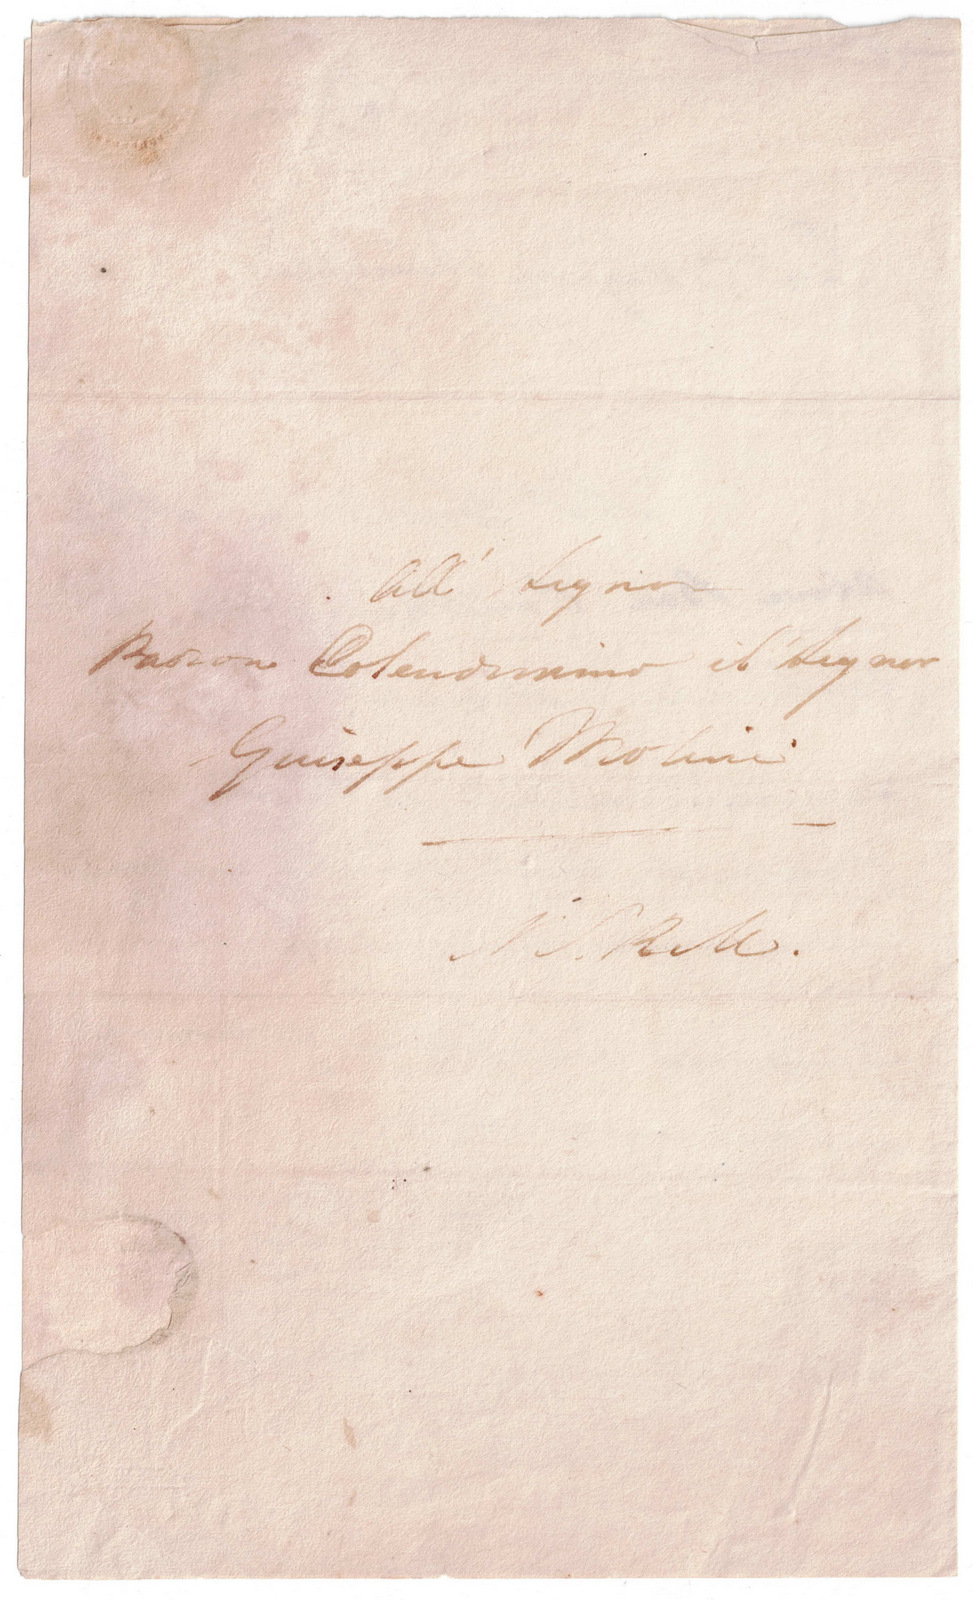 All' Signor
Padrone Colendissimo il Signor
Giuseppe Molini
S. R. M.